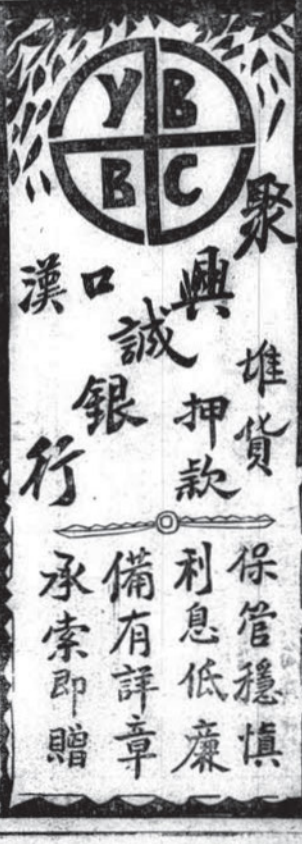 YB
BC
漢口
聚興誠銀行
堆貨
押款
保管穩慎
利息低廉
備有詳章
承索即贈